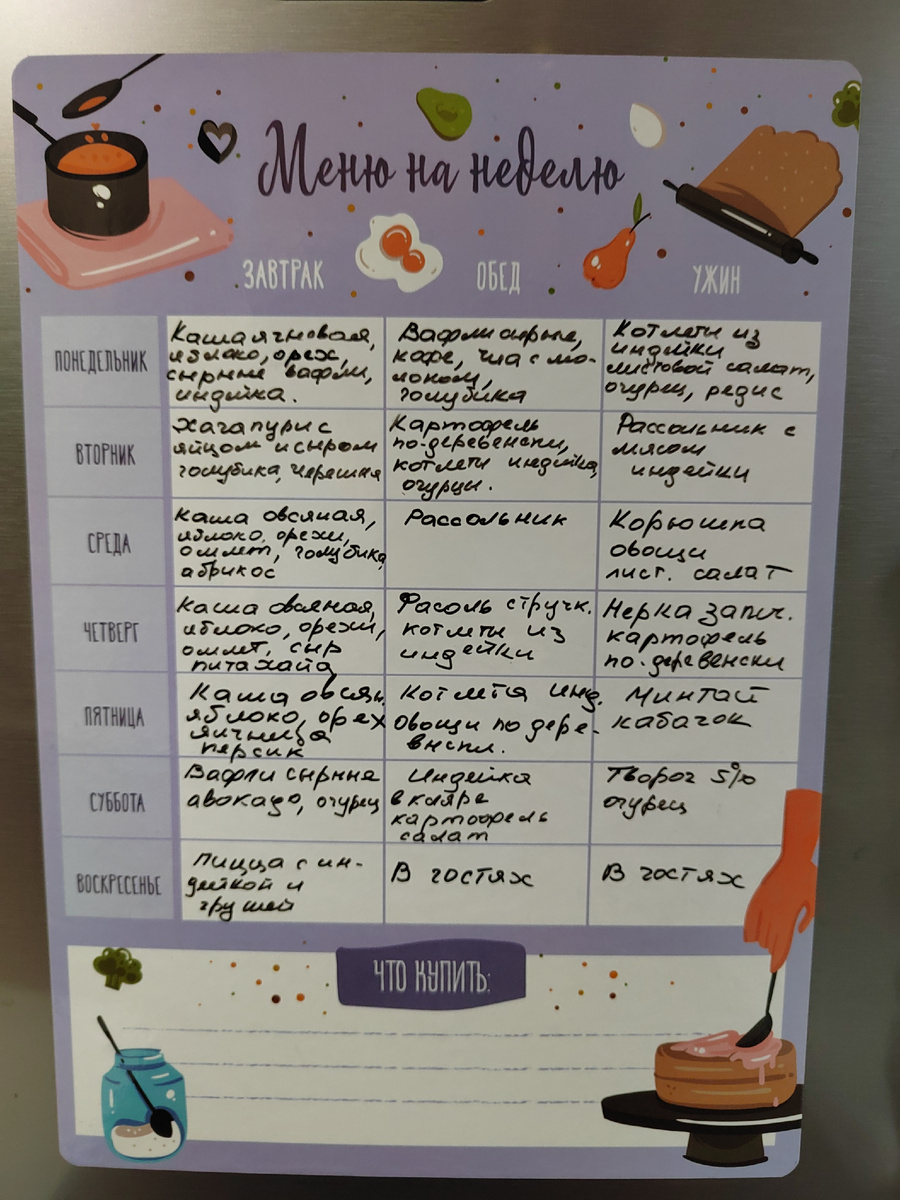 Меню на неделю
ЗАВТРАК ОБЕД УЖИН
ПОНЕДЕЛЬНИК
Каша ячневая,
яблоко, орех,
сырные вафли,
индейка.
Вафли сырные,
кофе, чиа с мо-
локом,
голубика
Котлеты из
индейки
листовой салат,
огурец, редис
ВТОРНИК
Хачапури с
яйцом и сыром
голубика, черешня
Картофель
по-деревенски,
котлеты индейка,
огурцы.
Рассольник с
мясом
индейки
СРЕДА
Каша овсяная,
яблоко, орехи,
омлет, голубика
абрикос
Рассольник
Корюшка
овощи
лист. салат
ЧЕТВЕРГ
Каша овсяная,
яблоко, орехи,
омлет, сыр
питахайя
Фасоль стручк.
котлеты из
индейки
Нерка запеч.
картофель
по-деревенски
ПЯТНИЦА
Каша овсян.
яблоко, орех
яичница
персик
Котлета инд.
Овощи по дере-
венски.
Минтай
кабачок
СУББОТА
Вафли сырные
авокадо, огурец
Индейка
в кляре
картофель
салат
Творог 5%
огурец
ВОСКРЕСЕНЬЕ
Пицца с ин-
дейкой и
грушей
В гостях
В гостях
ЧТО КУПИТЬ: